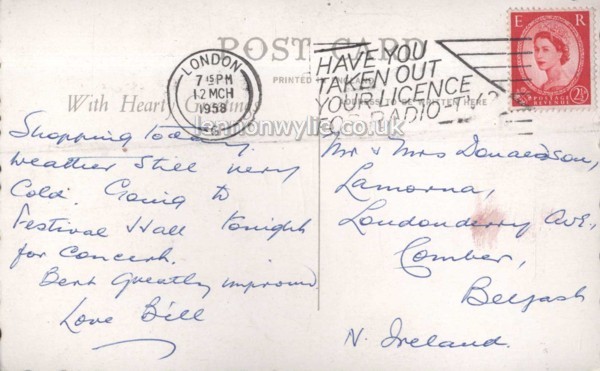 POST CARD
PRINTED IN ENGLAND
With Hearty Greetings
ADDRESS TO BE WRITTEN HERE
LONDON
7 15 PM
12 MCH
1958
HAVE YOU
TAKEN OUT
YOUR LICENCE
FOR RADIO-TV?
E R
POSTAGE
REVENUE
2½
lennonwylie.co.uk
Shopping today.
Weather still very
cold. Going to
Festival Hall tonight
for concert.
Bert greatly improved
Love Bill
Mr & Mrs Donaldson,
Lamorna,
Londonderry Ave,
Comber,
Belfast
N. Ireland.